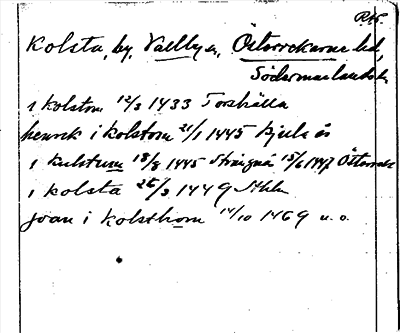 Kolsta, by, Vallby sn, Österrekarne hd,
Södermanlands l.
i kolstom 12/3 1433 Torshälla
henrek i kolstom 21/1 1445
i kulstum 18/8 1445 Strängnäs 15/6 1447 Österrek
i kolsta 26/3 1449 Sthlm
joan i kolsthom 14/10 1469 u.o.